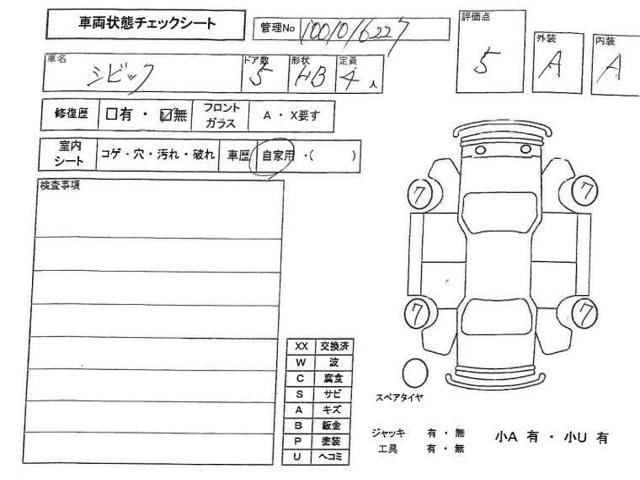 車両状態チェックシート
管理No 1001016227
評価点 5
外装 A
内装 A
車名 シビック
ドア数 5
形状 HB
定員 4 人
修復歴 □有 ・ ☑無
フロントガラス A ・ X要す
室内シート コゲ・穴・汚れ・破れ
車歴 自家用 ・( )
検査事項
7 7
7 7
XX 交換済
W 波
C 腐食
S サビ
A キズ
B 鈑金
P 塗装
U ヘコミ
スペアタイヤ
ジャッキ 有 ・ 無
工具 有 ・ 無
小A 有 ・ 小U 有